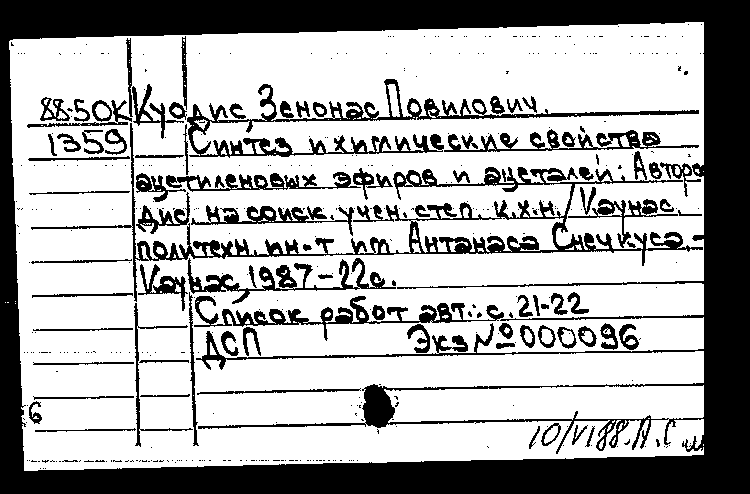 88-50К Куодис, Зенонас Повилович.
1359 Синтез и химические свойства
ацетиленовых эфиров и ацеталей: Авторе
дис. на соиск. учен. степ. к.х.н./Каунас.
политехн. ин-т им. Антанаса Снечкуса.-
Каунас, 1987.-22с.
Список работ авт.: с. 21-22
ДСП Экз №000096
6
10/VI88.А.С